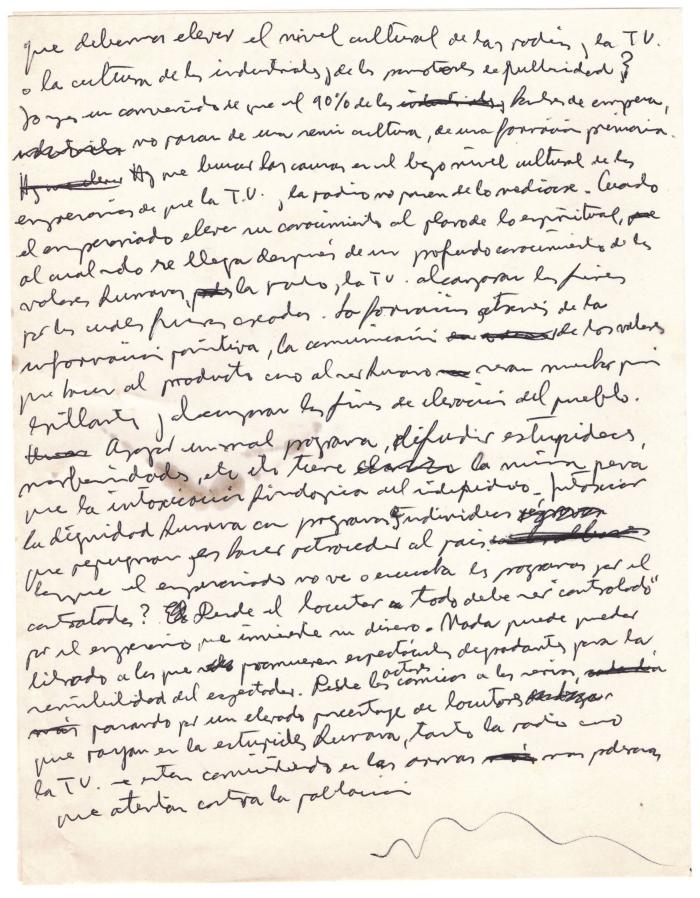 que debemos elever el nivel cultural de las radios y la T.V.
o la cultura de los industriales y de los promotores de publicidad?
Yo soy un convencido de que el 90% de los industriales, hombres de empresa,
no pasan de una semi cultura, de una formación primaria.
Hay que elever Hay que buscar las causas en el bajo nivel cultural de los
empresarios de que la T.V. y la radio no pasen de lo mediocre. Cuando
el empresariado eleve su conocimiento al plano de lo espiritual, que
al cual solo se llega después de un profundo conocimiento de los
valores humanos, la radio y la TV. alcanzaran los fines
por los cuales fueron creados. La formación a través de la
información positiva, la comunicación de los valores
que hacen al producto como al ser humano seran mucho más
brillantes y alcanzaran los fines de elevación del pueblo.
Apoyar un mal programa, difundir estupideces,
morbosidades, etc. etc tiene la misma pena
que la intoxicación fisiologica del individuo.
la dignidad humana con programas e individuos
que repugnan, es hacer retroceder al pais
es que el empresariado no ve o escucha los programas por el
contratados? Desde el locutor a todo debe ser "controlado"
por el empresario que invierte su dinero. Nada puede quedar
librado a los que promueven espectáculos degradantes para la
sensibilidad del espectador. Desde los actores comicos a los serios,
más pasando por un elevado porcentaje de locutores
que rayan en la estupidez humana, tanto la radio como
la TV. se estan convirtiendo en las armas mas poderosas
que atentan contra la poblacion